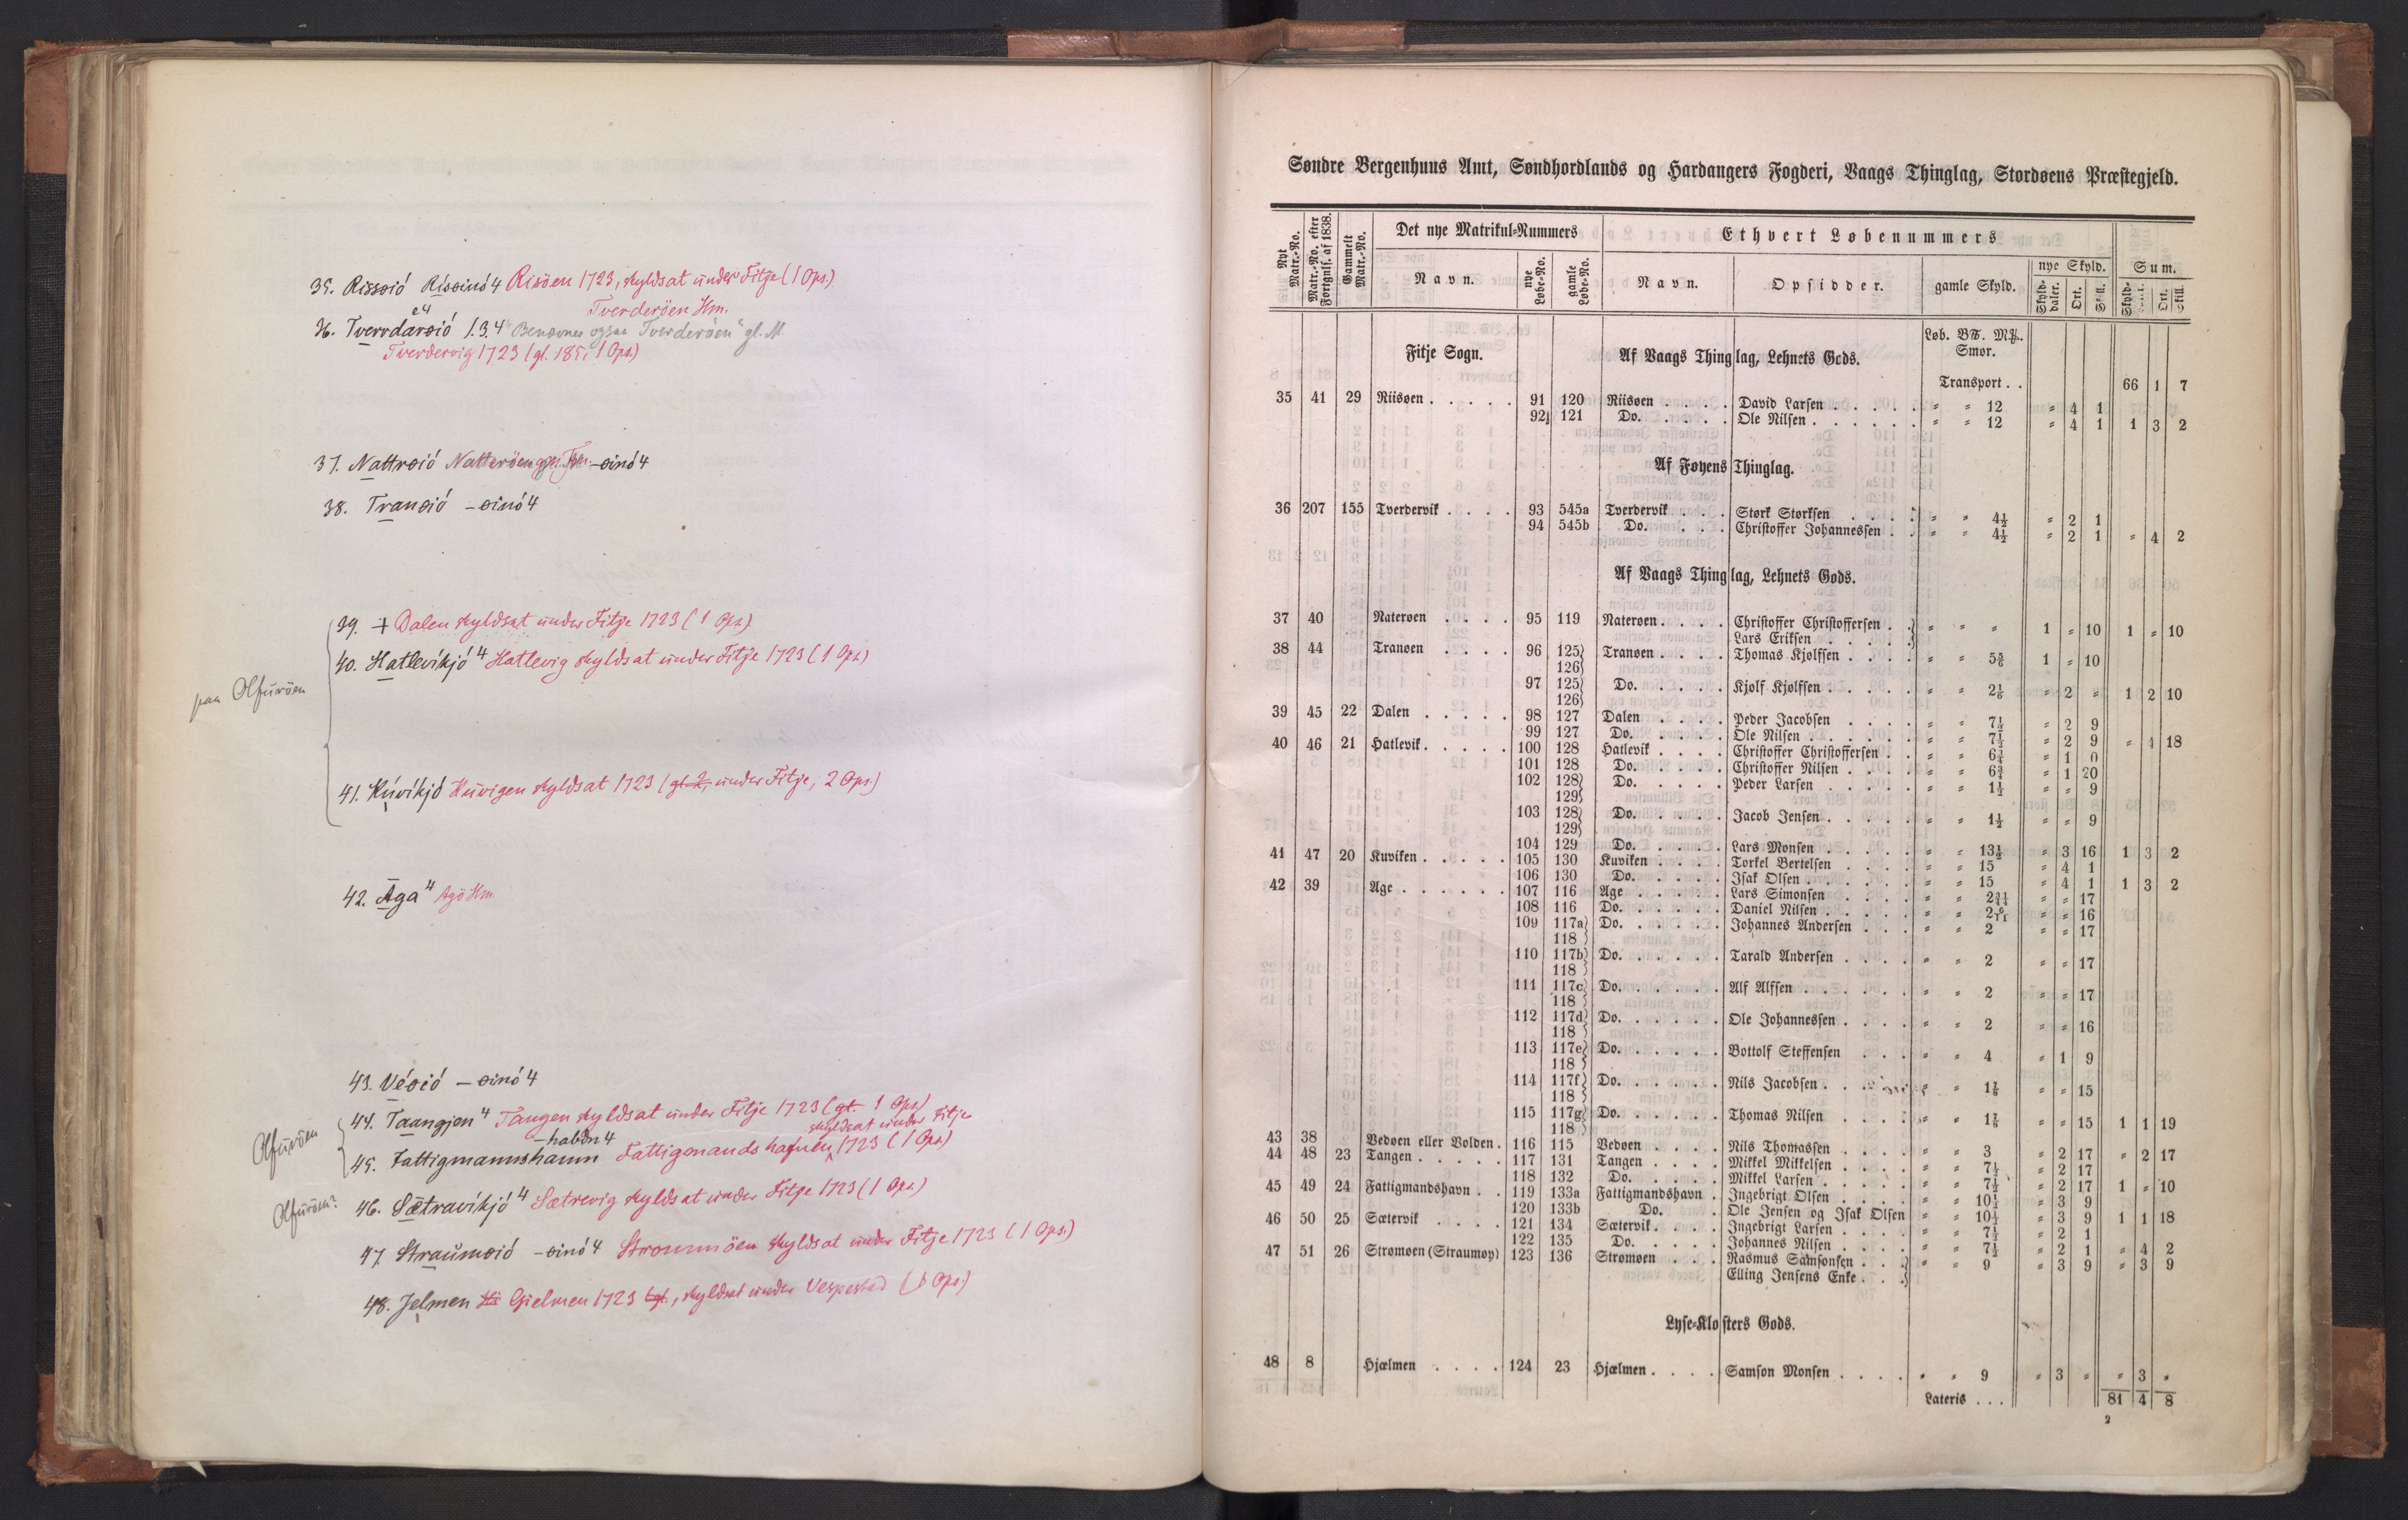 35. Rissøió Risøinó 4 Risöen 1723, skyldsat under Fitje (1 Ops.)
Tverderöen Hm.
e4
36. Tverrdarøió 1.3.4 "Benævnes ogsaa Tverderöen" gl. M
Tverdervig 1723 (gl. 185, 1 Ops.)
37. Nattrøió Natteröen -øinó 4
38. Tranøió -øinó 4
39. + Dalen skyldsat under Fitje 1723 (1 Ops.)
40. Hatlevikjó 4 Hatlevig skyldsat under Fitje 1723 (1 Ops.)
paa Olfuröen
41. Kúvikjó Kuvigen skyldsat 1723 (gl. 2, under Fitje, 2 Ops.)
42. Aga 4 Agö Hm.
43. Véøió -øinó 4
44. Taangjen 4 Tangen skyldsat under Fitje 1723 (gl. 1 Ops.)
Olfuröen
-habdn 4 skyldsat under Fitje
45. Fattigmannshamn Fattigmands hafnen 1723 (1 Ops.)
46. Sætravikjó 4 Sætrevig skyldsat under Fitje 1723 (1 Ops.)
Olfuröen?
47. Straumøió -øinó 4 Strommöen skyldsat under Fitje 1723 (1 Ops.)
48. Jelmen Gielmen 1723, skyldsat under Vespestad (1 Ops.)
Søndre Bergenhuus Amt, Søndhordlands og Hardangers Fogderi, Vaags Thinglag, Stordøens Præstegjeld.
Nyt Matr.-No. Matr.-No. efter Fortgnls. af 1838. Gammelt Matr.-No. Det nye Matrikul-Nummers Ethvert Løbenummers
Navn. nye Løbe-No. gamle Løbe-No. Navn. Opsidder. gamle Skyld. nye Skyld. Sum.
Skylddaler. Ort. Skill. Ort. Skill.
Løb. BƱ. M℔.
Smør.
Fitje Sogn. Af Vaags Thinglag, Lehnets Gods.
Transport . . 66 1 7
35 41 29 Riisøen . . . . . 91 120 Riisøen . . . . David Larsen . . . . . " " 12 " 4 1
92 121 Do. . . . . Ole Nilsen . . . . . . " " 12 " 4 1 1 3 2
Af Føyens Thinglag.
36 207 155 Tverdervik . . . . 93 545a Tverdervik . . . Størk Størksen . . . . " " 4½ " 2 1
94 545b Do. . . . . Christoffer Johannessen . . " " 4½ " 2 1 " 4 2
Af Vaags Thinglag, Lehnets Gods.
37 40 Naterøen . . . . 95 119 Naterøen . . . . Christoffer Christoffersen . . } " " " 1 " 10 1 " 10
Lars Eriksen . . . . . }
38 44 Tranøen . . . . 96 125} Tranøen . . . . Thomas Kjølfsen . . . . " " 5⅚ 1 " 10
126}
97 125} Do. . . . . Kjølf Kjølfsen . . . . . " " 2⅙ " 2 " 1 2 10
126}
39 45 22 Dalen . . . . . 98 127 Dalen . . . . Peder Jacobsen . . . . " " 7½ " 2 9
99 127 Do. . . . . Ole Nilsen . . . . . . " " 7½ " 2 9 " 4 18
40 46 21 Hatlevik . . . . . 100 128 Hatlevik . . . . Christoffer Christoffersen . . " " 6¾ " 1 0
101 128 Do. . . . . Christoffer Nilsen . . . . " " 6¾ " 1 20
102 128} Do. . . . . Peder Larsen . . . . . " " 1½ " " 9
129}
103 128} Do. . . . . Jacob Jensen . . . . . " " 1½ " " 9
129}
104 129 Do. . . . . Lars Monsen . . . . . " " 13½ " 3 16 1 3 2
41 47 20 Kuviken . . . . . 105 130 Kuviken . . . . Torkel Bertelsen . . . . " " 15 " 4 1
106 130 Do. . . . . Isak Olsen . . . . . . " " 15 " 4 1 1 3 2
42 39 Age . . . . . . 107 116 Age . . . . . Lars Simonsen . . . . " " 2 " " 17
108 116 Do. . . . . . Daniel Nilsen . . . . . " " 2 " " 16
109 117a} Do. . . . . . Johannes Andersen . . . " " 2 " " 17
118 }
110 117b} Do. . . . . . Tarald Andersen . . . . " " 2 " " 17
118 }
111 117c} Do. . . . . . Alf Alfsen . . . . . . " " 2 " " 17
118 }
112 117d} Do. . . . . . Ole Johannessen . . . . " " 2 " " 16
118 }
113 117e} Do. . . . . . Bottolf Steffensen . . . " " 4 " 1 9
118 }
114 117f} Do. . . . . . Nils Jacobsen . . . . . " " 1⅞ " " 15
118 }
115 117g} Do. . . . . . Thomas Nilsen . . . . " " 1⅞ " " 15 1 1 19
118 }
43 38 Vedøen eller Volden . 116 115 Vedøen . . . . Nils Thomassen . . . . " " 3 " 2 17 " 2 17
44 48 23 Tangen . . . . . 117 131 Tangen . . . . Mikkel Mikkelsen . . . . " " 7½ " 2 17
118 132 Do. . . . . Mikkel Larsen . . . . . " " 7½ " 2 17 1 " 10
45 49 24 Fattigmandshavn . . 119 133a Fattigmandshavn . Ingebrigt Olsen . . . . " " 10½ " 3 9
120 133b Do. . Ole Jensen og Isak Olsen " " 10½ " 3 9 1 1 18
46 50 25 Sætervik . . . . 121 134 Sætervik . . . . Ingebrigt Larsen . . . . " " 7½ " 2 1
122 135 Do. . . . . Johannes Nilsen . . . . " " 7½ " 2 1 " 4 2
47 51 26 Strømøen (Straumøy) 123 136 Strømøen . . . Rasmus Samsonsen . . . } " " 9 " 3 9 " 3 9
Elling Jensens Enke . . . }
Lyse-Klosters Gods.
48 8 Hjælmen . . . . 124 23 Hjælmen . . . . Samson Monsen . . . . " " 9 " 3 " " 3 "
Lateris . . . 81 4 8
2